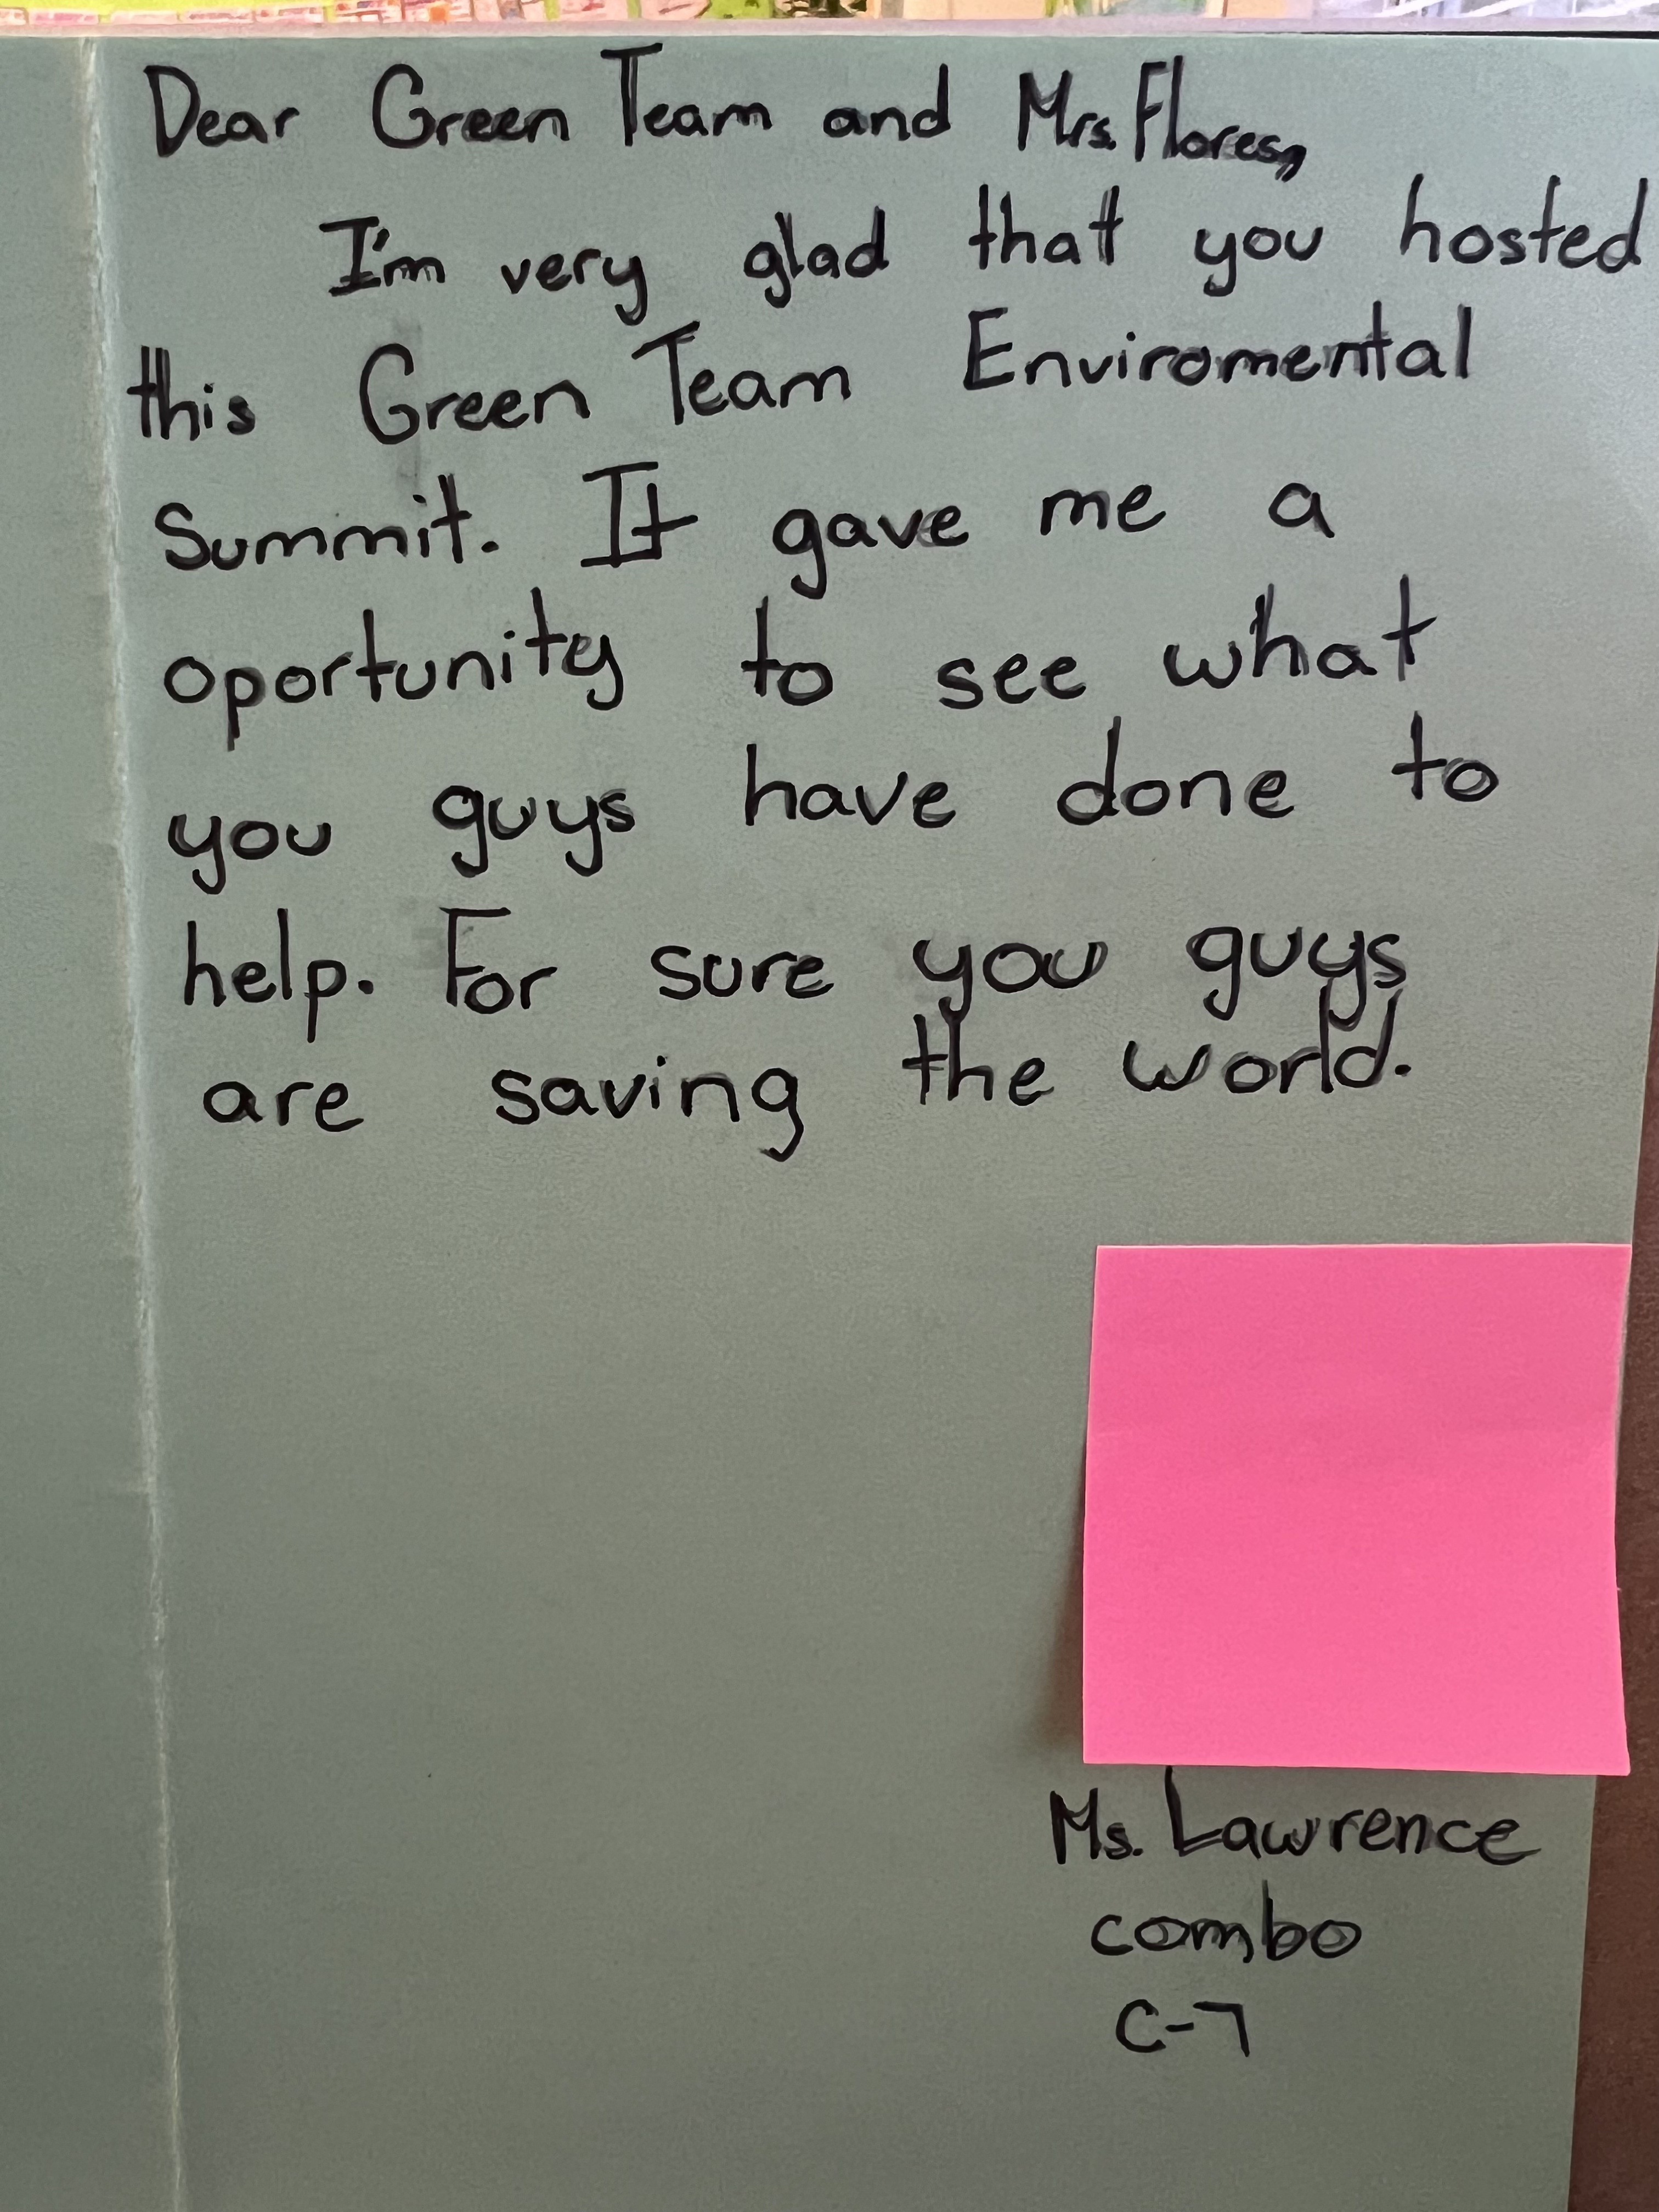 Dear Green Team and Mrs. Flores,
I'm very glad that you hosted
this Green Team Enviromental
Summit. It gave me a
oportunity to see what
you guys have done to
help. For sure you guys
are saving the world.
Ms. Lawrence
combo
C-7